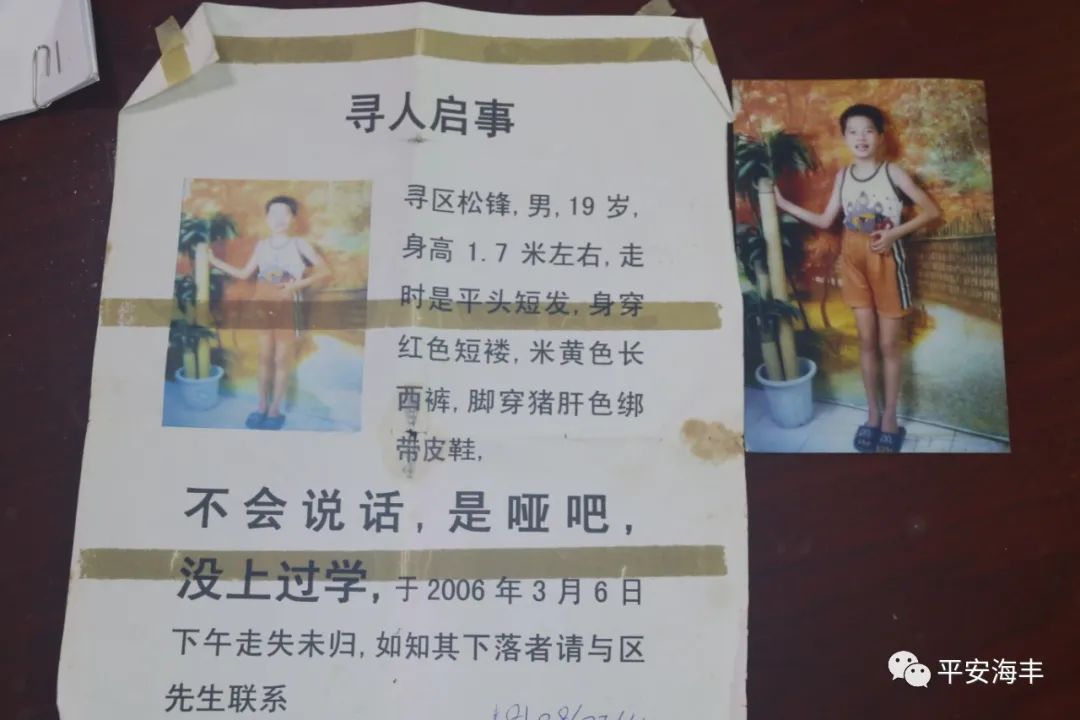 寻人启事
寻区松锋,男,19 岁,
身高 1.7 米左右,走
时是平头短发,身穿
红色短褛,米黄色长
西裤,脚穿猪肝色绑
带皮鞋,
不会说话,是哑吧,
没上过学,于2006 年 3 月 6 日
下午走失未归,如知其下落者请与区
先生联系
平安海丰